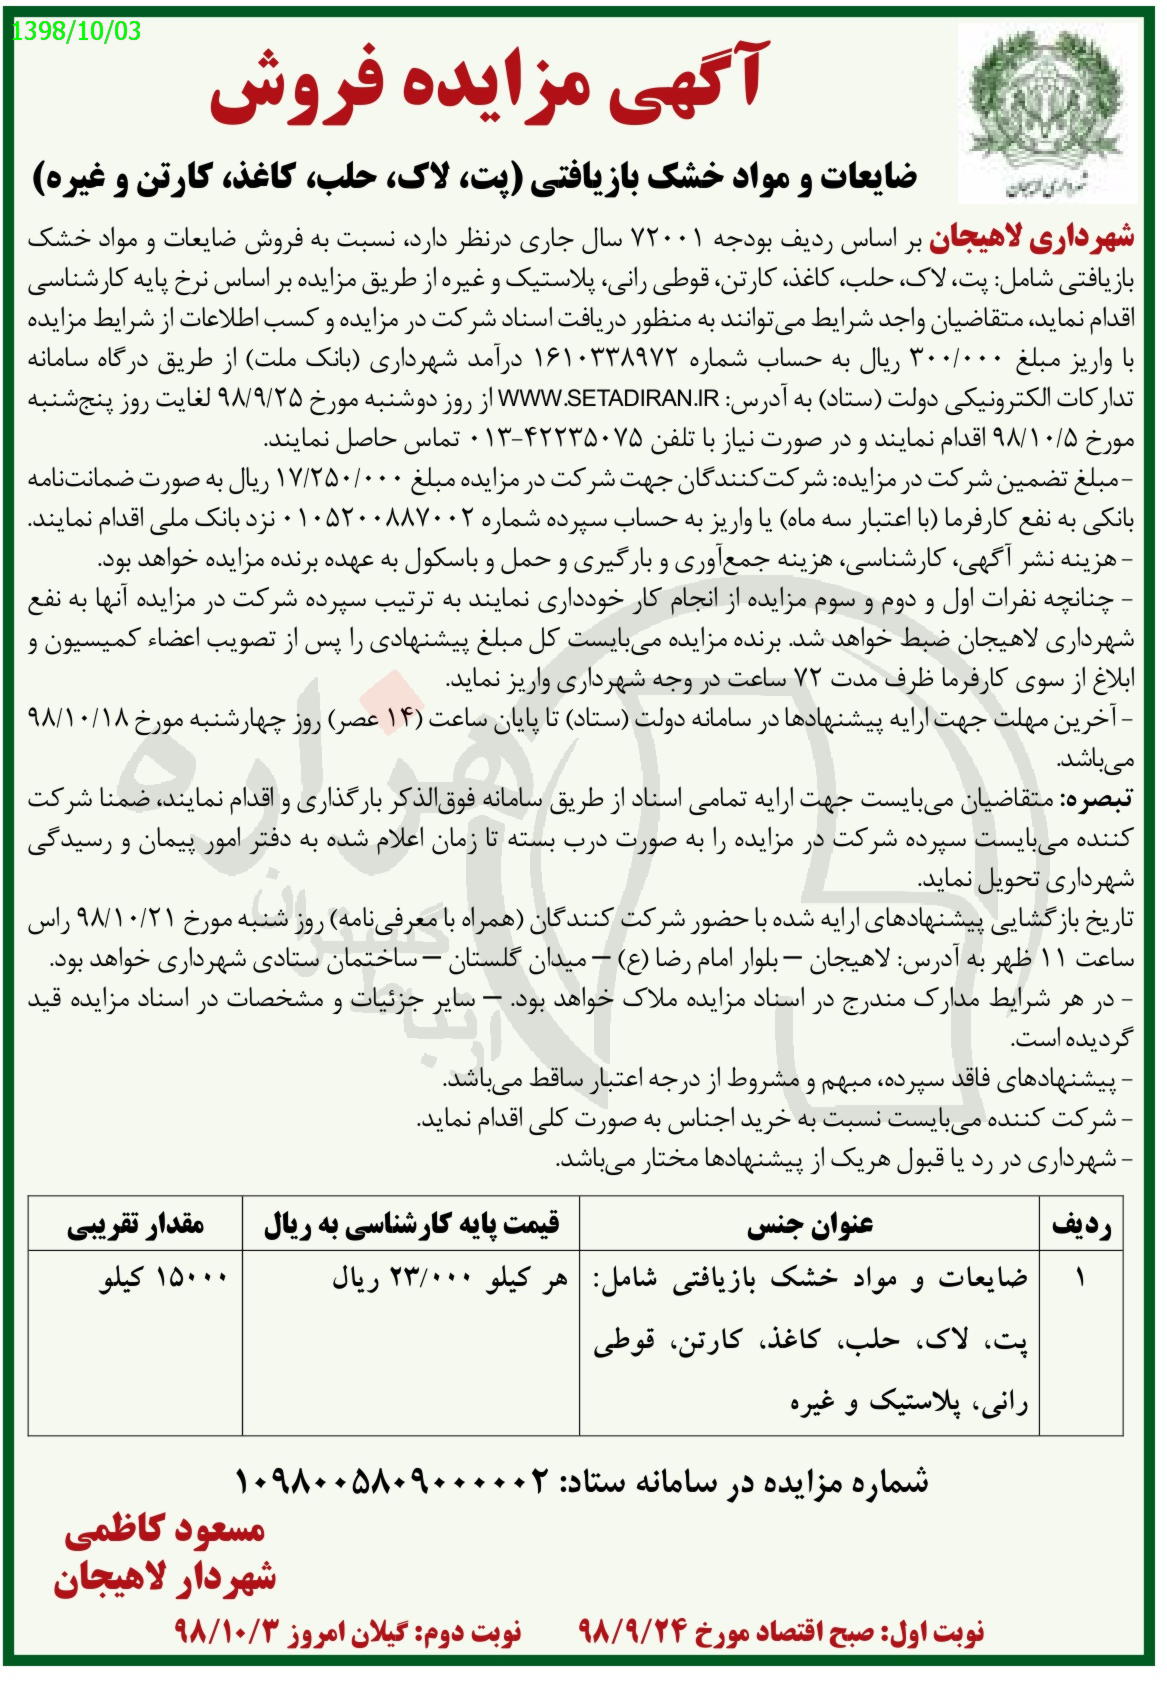 1398/10/03
آگهی مزایده فروش
شهرداری لاهیجان
ضایعات و مواد خشک بازیافتی (پت، لاک، حلب، کاغذ، کارتن و غیره)
شهرداری لاهیجان بر اساس ردیف بودجه ۷۲۰۰۱ سال جاری درنظر دارد، نسبت به فروش ضایعات و مواد خشک
بازیافتی شامل: پت، لاک، حلب، کاغذ، کارتن، قوطی رانی، پلاستیک و غیره از طریق مزایده بر اساس نرخ پایه کارشناسی
اقدام نماید، متقاضیان واجد شرایط می‌توانند به منظور دریافت اسناد شرکت در مزایده و کسب اطلاعات از شرایط مزایده
با واریز مبلغ ۳۰۰/۰۰۰ ریال به حساب شماره ۱۶۱۰۳۳۸۹۷۲ درآمد شهرداری (بانک ملت) از طریق درگاه سامانه
تدارکات الکترونیکی دولت (ستاد) به آدرس: WWW.SETADIRAN.IR از روز دوشنبه مورخ ۹۸/۹/۲۵ لغایت روز پنج‌شنبه
مورخ ۹۸/۱۰/۵ اقدام نمایند و در صورت نیاز با تلفن ۴۲۲۳۵۰۷۵-۰۱۳ تماس حاصل نمایند.
-مبلغ تضمین شرکت در مزایده: شرکت‌کنندگان جهت شرکت در مزایده مبلغ ۱۷/۲۵۰/۰۰۰ ریال به صورت ضمانت‌نامه
بانکی به نفع کارفرما (با اعتبار سه ماه) یا واریز به حساب سپرده شماره ۰۱۰۵۲۰۰۸۸۷۰۰۲ نزد بانک ملی اقدام نمایند.
- هزینه نشر آگهی، کارشناسی، هزینه جمع‌آوری و بارگیری و حمل و باسکول به عهده برنده مزایده خواهد بود.
- چنانچه نفرات اول و دوم و سوم مزایده از انجام کار خودداری نمایند به ترتیب سپرده شرکت در مزایده آنها به نفع
شهرداری لاهیجان ضبط خواهد شد. برنده مزایده می‌بایست کل مبلغ پیشنهادی را پس از تصویب اعضاء کمیسیون و
ابلاغ از سوی کارفرما ظرف مدت ۷۲ ساعت در وجه شهرداری واریز نماید.
- آخرین مهلت جهت ارایه پیشنهادها در سامانه دولت (ستاد) تا پایان ساعت (۱۴ عصر) روز چهارشنبه مورخ ۹۸/۱۰/۱۸
می‌باشد.
تبصره: متقاضیان می‌بایست جهت ارایه تمامی اسناد از طریق سامانه فوق‌الذکر بارگذاری و اقدام نمایند، ضمنا شرکت
کننده می‌بایست سپرده شرکت در مزایده را به صورت درب بسته تا زمان اعلام شده به دفتر امور پیمان و رسیدگی
شهرداری تحویل نماید.
تاریخ بازگشایی پیشنهادهای ارایه شده با حضور شرکت کنندگان (همراه با معرفی‌نامه) روز شنبه مورخ ۹۸/۱۰/۲۱ راس
ساعت ۱۱ ظهر به آدرس: لاهیجان – بلوار امام رضا (ع) – میدان گلستان – ساختمان ستادی شهرداری خواهد بود.
- در هر شرایط مدارک مندرج در اسناد مزایده ملاک خواهد بود. – سایر جزئیات و مشخصات در اسناد مزایده قید
گردیده است.
- پیشنهادهای فاقد سپرده، مبهم و مشروط از درجه اعتبار ساقط می‌باشد.
- شرکت کننده می‌بایست نسبت به خرید اجناس به صورت کلی اقدام نماید.
- شهرداری در رد یا قبول هریک از پیشنهادها مختار می‌باشد.
ردیف عنوان جنس قیمت پایه کارشناسی به ریال مقدار تقریبی
۱ ضایعات و مواد خشک بازیافتی شامل: هر کیلو ۲۳/۰۰۰ ریال ۱۵۰۰۰ کیلو
پت، لاک، حلب، کاغذ، کارتن، قوطی
رانی، پلاستیک و غیره
شماره مزایده در سامانه ستاد: ۱۰۹۸۰۰۵۸۰۹۰۰۰۰۰۲
مسعود کاظمی
شهردار لاهیجان
نوبت اول: صبح اقتصاد مورخ ۹۸/۹/۲۴ نوبت دوم: گیلان امروز ۹۸/۱۰/۳
هزاره